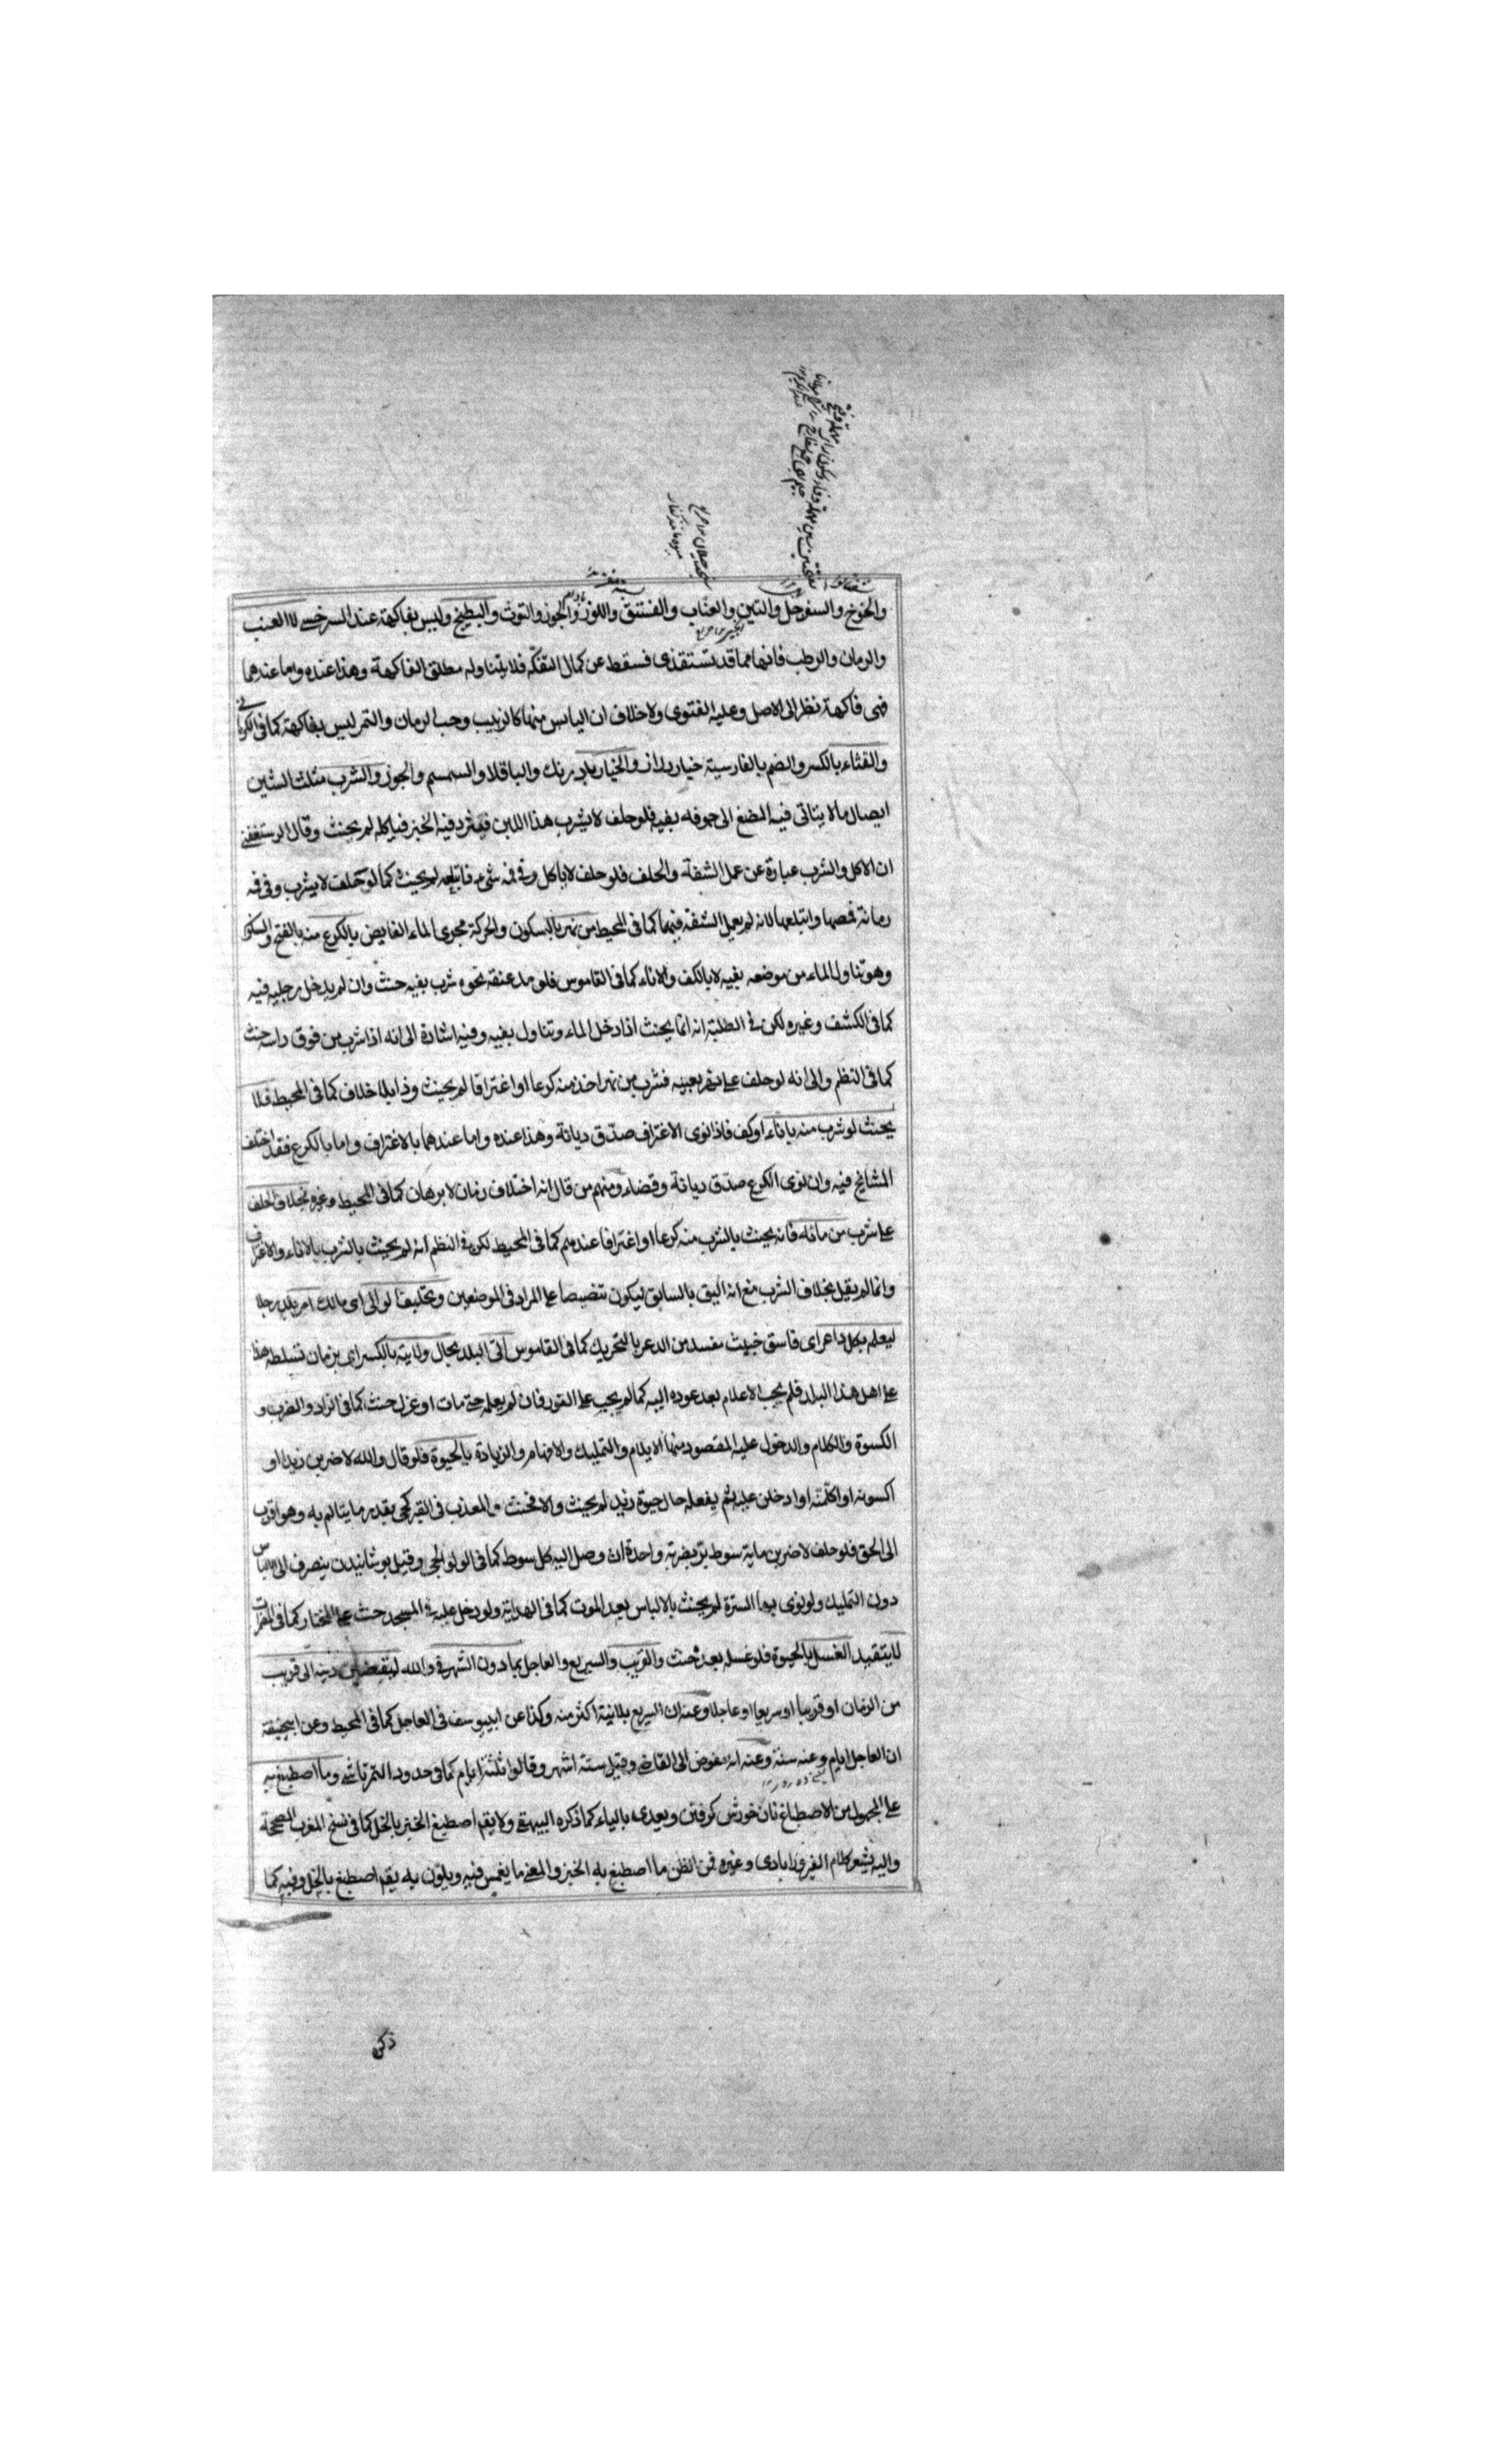 والخوخ والسفرجل والتين والعناب والفستق واللوز والجوز والتوت والبطيخ وليس بفاكهة عند السرخسي لا العنب
والرمان والرطب فانها مما قد تستغذى فسقط عن كمال التفكّه فلا يتناوله مطلق الفاكهة وهذا عنده واما عندهما
فهى فاكهة نظر الى الاصل وعليه الفتوى ولا خلاف ان اليابس منها كالزبيب وحب الرمان والتمر ليس بفاكهة كما فى الكرمانى
والقثاء بالكسر والضم بالفارسية خيار دراز والخيار بادرنك والباقلا والسمسم والجوز والشرب مثلث الشين
ايصال ما لا يتاتى فيه المضغ الى جوفه بفيه فلو حلف لا يشرب هذا اللبن فيثرد فيه الخبز فياكله لم يحنث وقال الرستغفنى
ان الاكل والشرب عبارة عن عمل الشفة والحلف فلو حلف لا ياكل وفى فمه شىء فابتلعه لم يحنث كما لو حلف لا يشرب وفى فمه
رمانة فمصها وابتلعها لانه لم يعمل الشفة فيهما كما فى المحيط من نهر بالسكون والحركة مجرى الماء الفايض بالكرع منه بالفتح والسكون
وهو تناول الماء من موضعه بفيه لا بالكف والاناء كما فى القاموس فلو مد عنقه نحوه شرب بفيه حنث وان لم يدخل رجليه فيه
كما فى الكشف وغيره لكن فى الطلبة انه انما يحنث اذا دخل الماء وتناول بفيه وفيه اشارة الى انه اذا شرب من فوق راسه حنث
كما فى النظم والى انه لو حلف على نهر بعينه فشرب من نهر اخذ منه كرعا او اغترافا لم يحنث وذا بلا خلاف كما فى المحيط فلا
يحنث لو شرب منه باناء او كف فاذا نوى الاغتراف صدّق ديانة وهذا عنده واما عندهما بالاغتراف واما بالكرع فقد اختلف
المشايخ فيه وان نوى الكرع صدّق ديانة وقضاء ومنهم من قال انه اختلاف زمان لا برهان كما فى المحيط وغيره بخلاف الحلف
على شرب من مائه فانه يحنث بالشرب منه كرعا او اغترافا عندهم كما فى المحيط لكن فى النظم انه لم يحنث بالشرب بالاناء والاغتراف
وانما لم يقل بخلاف الشرب مع انه اليق بالسابق ليكون تنصيصا على المراد فى الموضعين وتحليف الوالى اى مالك امر بلد رجلا
ليعلمه بكل داعر اى فاسق خبيث مفسد من الدعر بالتحريك كما فى القاموس اتى البلد بحال ولايته بالكسر اى بزمان تسلطه هذا
على اهل هذا البلد فلم يجب الاعلام بعد عوده اليه كما لم يجب على الفور فان لم يعلمه حتى مات او عزل حنث كما فى الزاد والضرب و
الكسوة والكلام والدخول عليه المقصود منها الايلام والتمليك والافهام والزيادة بالحيوة فلو قال والله لاضربن زيدا او
اكسونه او اكلمنّه او ادخلن عليه لم يفعله حال حيوة زيد لم يحنث والا فحنث والمعذب فى القبر حى بقدر ما يتالم به وهو اقرب
الى الحق فلو حلف لاضربن ماية سوط برّ بضربة واحدة ان وصل اليه كل سوط كما فى الولوالجى وقيل پوشانيدن ينصرف الى الالباس
دون التمليك ولو نوى بها السترة لم يحنث بالالباس بعد الموت كما فى الهداية ولو دخل عليه فى المسجد حنث على المختار كما فى المضمرات
لا يتقيد الغسل بالحيوة فلو غسله بعده حنث والقريب والسريع والعاجل بما دون الشهر فى والله ليقضين دينه الى قريب
من الزمان او قريبا او سريعا او عاجلا وعنه ان السريع بلا نية اكثر منه وكذا عن ابى يوسف فى العاجل كما فى المحيط وعن ابى حنيفة
ان العاجل ايام وعنه سنة وعنه انه مفوض الى القاضى وقيل ستة اشهر وقالوا ثلثة ايام كما فى حدود التمرتاشى وما اصطبغ به
على المجهول من الاصطباغ نان خورش كرفتن ويعدى بالباء كما ذكره البيهقى ولا يقم اصطبغ الخبز بالخل كما فى نسخ المغرب المصححة
واليه يشعر كلام الفيروزابادى وغيره فمن الظن ما اصطبغ به الخبز والمعنى ما يغمس فيه ويلون به يقم اصطبغ بالخل وفيه كما